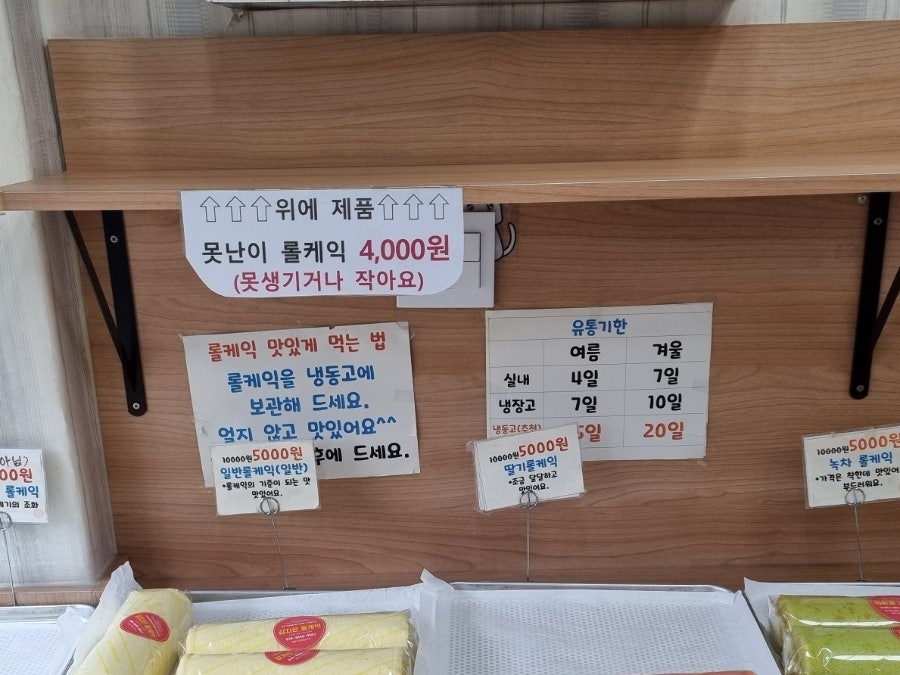 ⇧⇧⇧위에 제품⇧⇧⇧
못난이 롤케익 4,000원
(못생기거나 작아요)
롤케익 맛있게 먹는 법
롤케익을 냉동고에
보관해 드세요.
얼지 않고 맛있어요^^
후에 드세요.
유통기한
여름 겨울
실내 4일 7일
냉장고 7일 10일
냉동고(추천) 20일
00원
롤케익
조화
10000원 5000원
일반롤케익(일반)
*롤케익의 기준이 되는 맛
맛있어요.
10000원 5000원
딸기롤케익
*조금 달달하고
맛있어요.
10000원 5000원
녹차 롤케익
*가격은 착한데 맛있어
부드러워요.
롤케익